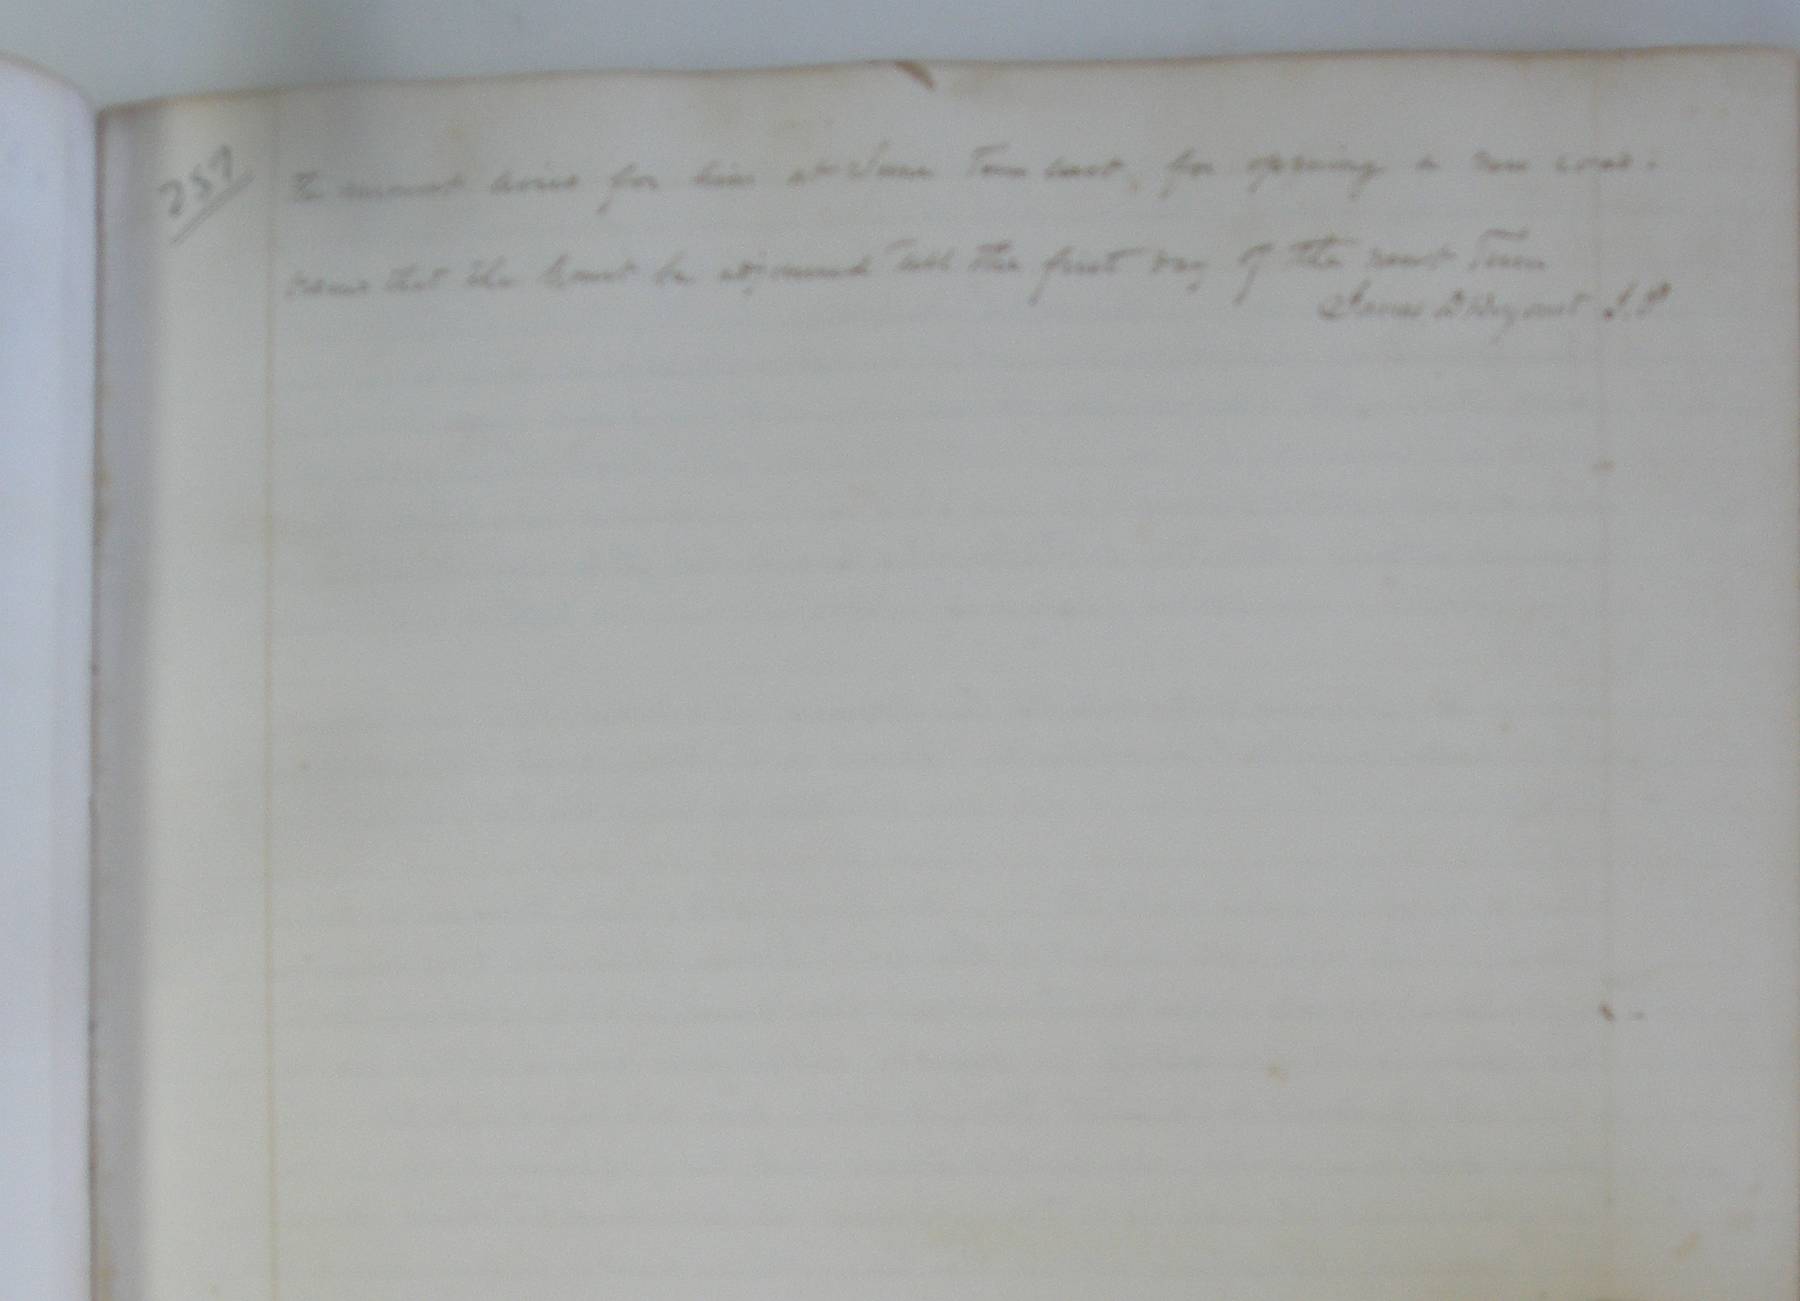 257
the amount levied for him at June Term last, for opening a new road.
that the Court be adjourned till the first day of the next Term
James D Wryant J.P